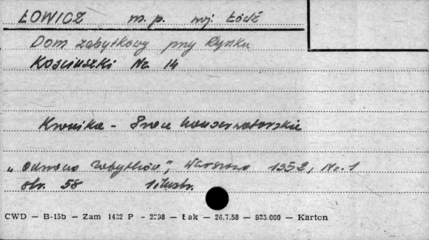 ŁOWICZ m. p. woj. Łódź
Dom zabytkowy przy Rynku
Kościuszki Nr 14
Kronika - Prace konserwatorskie
„Ochrona Zabytków", Warszawa 1952, Nr. 1
str. 58 1 ilustr.
CWD — B-15b — Zam 1422 P - 2298 — Łak — 26.7.58 — 933.000 — Karton